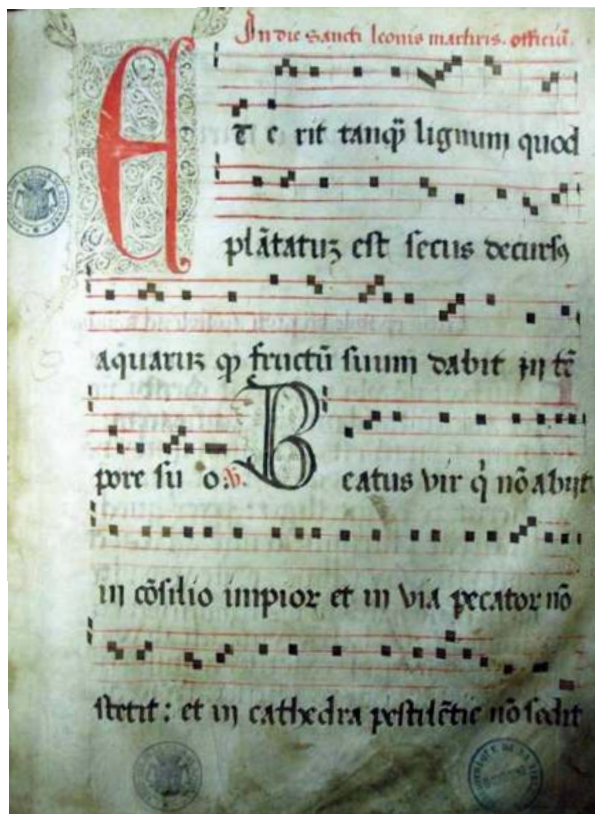 In die sancti leonis martiris. officiū.
Et e rit tanq̄ lignum quod
plātatuꝫ est secus decursꝰ
aquaruꝫ qꝫ fructū suum dabit in tē
pore su o: ℣. Beatus vir q̇ nō abijt
in cōsilio impior et in via pecator nō
stetit: et in cathedra pestilētie nō sedit